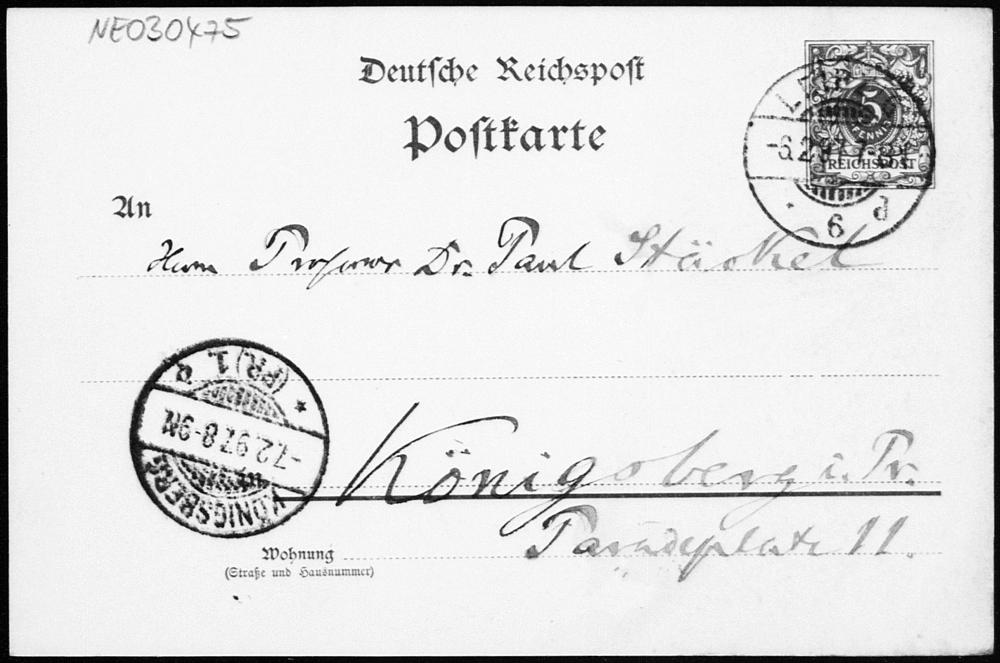 NE030475
Deutsche Reichspost
Postkarte
5
PFENNIG
REICHSPOST
LEIPZIG
-6.2.97.7-8
6 d
An
Herrn Professor Dr. Paul Stäckel
KÖNIGSBERG
-7.2.97.8-9N
(PR.) 1.
Königsberg i. Pr.
Wohnung
Paradeplatz 11.
(Straße und Hausnummer)